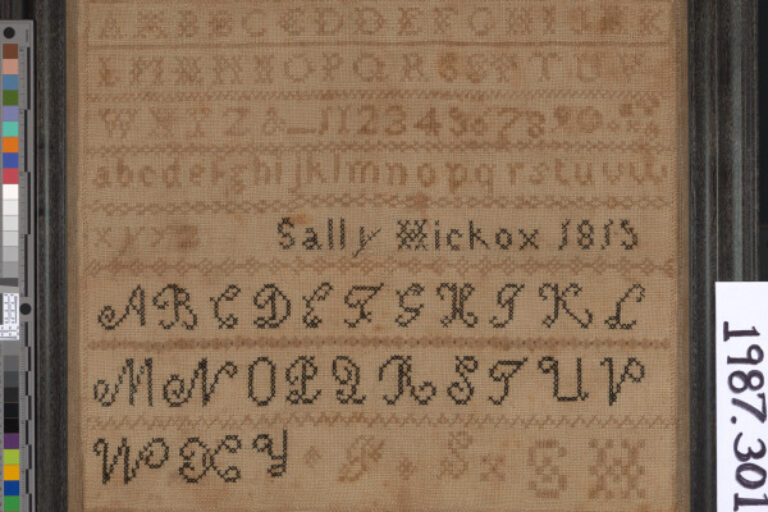 A B B C C D D E F G H I J K
L M N N O P Q R S S T T U V
W X Y Z & J 1 2 3 4 5 6 7 8 9 0
a b c d e f g h i j k l m n o p q r s t u v w
x y z
Sally Hickox 1815
A B C D E F G H I J K L
M N O P Q R S T U V
W X Y
S H
1987.301